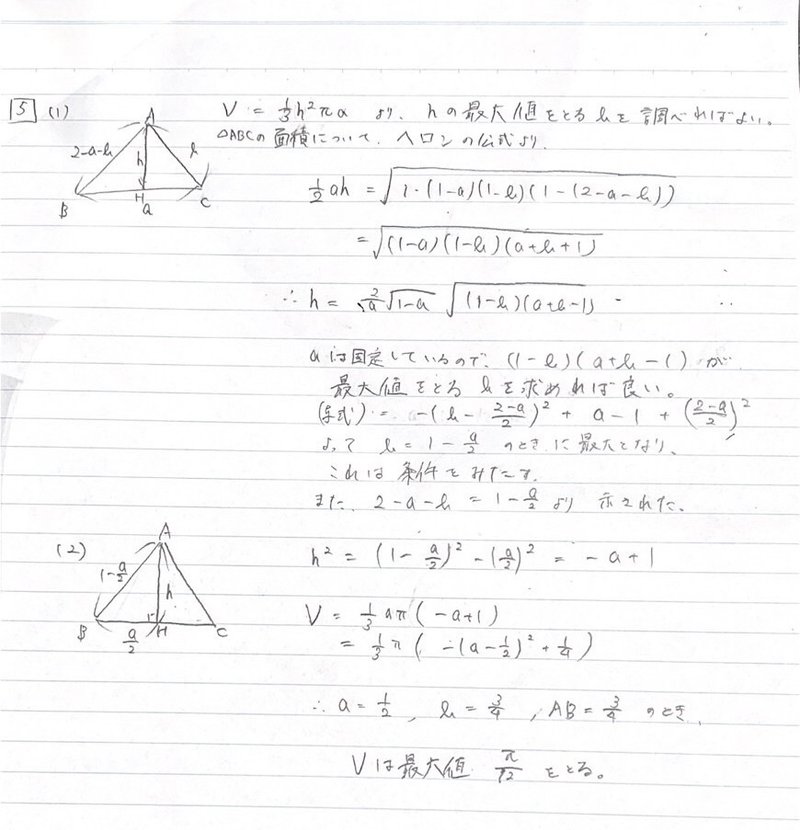 5 (1)
V = 1/3 h²πa より、hの最大値をとる b を調べればよい。
△ABCの面積について、ヘロンの公式より、
A
2-a-b
h
b
B
H
a
C
1/2 ah = √(1・(1-a)(1-b)(1-(2-a-b)))
= √((1-a)(1-b)(a+b+1))
∴ h = 2/a √(1-a) √((1-b)(a+b-1))
aは固定しているので、(1-b)(a+b-1) が
最大値をとる b を求めれば良い。
(与式) = -(b - (2-a)/2)² + a - 1 + ((2-a)/2)²
よって b = 1 - a/2 のときに最大となり、
これは条件をみたす。
また、2-a-b = 1 - a/2 より 示された。
(2)
A
1-a/2
h
B
a/2
H
C
h² = (1 - a/2)² - (a/2)² = -a+1
V = 1/3 aπ(-a+1)
= 1/3 π(-(a-1/2)² + 1/4)
∴ a = 1/2 , b = 3/4 , AB = 3/4 のとき、
Vは最大値 π/12 をとる。